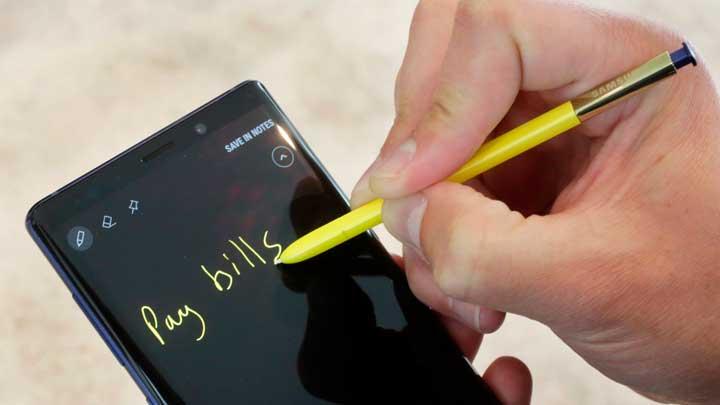 SAVE IN NOTES
Pay bills
SAMSUNG